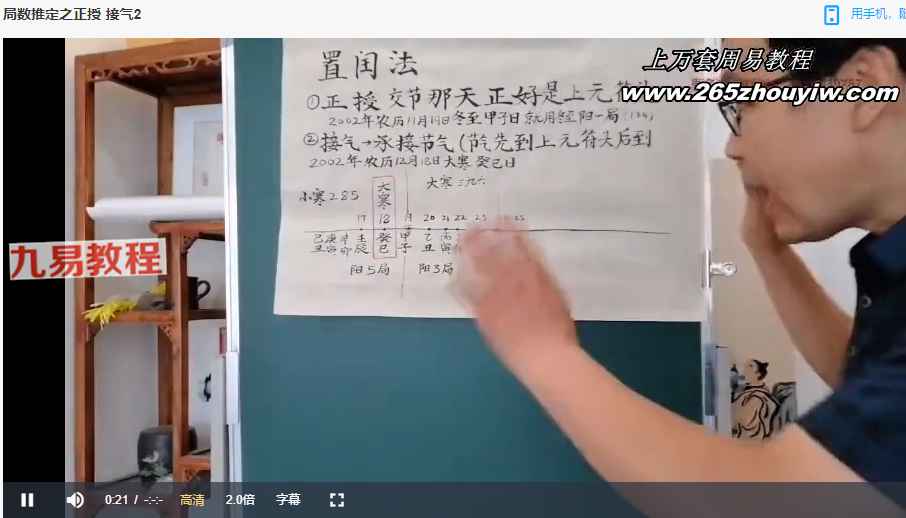 局数推定之正授 接气2
用手机，
上万套周易教程
www.265zhouyiw.com
置闰法
①正授 交节那天正好是上元符头
2002年农历11月19日冬至甲子日 就用冬至阳一局
②接气→承接节气(节气先到上元符头后到
2002年农历12月18日大寒 癸巳日
小寒285 大寒 大寒三九六
17 18 19 20 21 22 23 25
己庚辛壬 癸 甲 乙 丙
丑寅卯辰 巳 子 丑 寅
阳5局 阳3局
九易教程
0:21 / -:-:- 高清 2.0倍 字幕